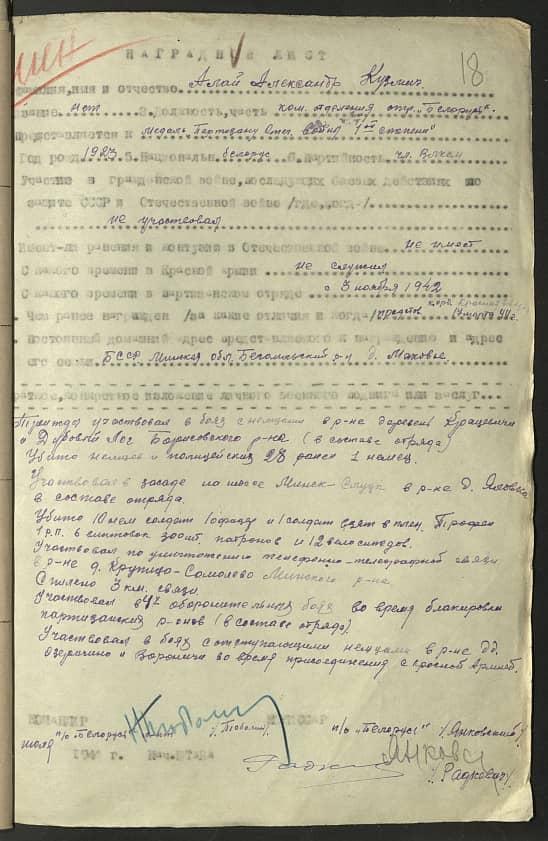 18
НАГРАДНОЙ ЛИСТ
Фамилия, имя и отчество Алай Александр Кузмич
Звание нет 3. Должность, часть ком. отделения отр. "Беларусь".
Представляется к медаль Партизану Отеч. войны II степени"
Год рожд. 1923 5. Национальн. белорус 6. Партийность чл. ВЛКСМ
Участие в гражданской войне, последующих боевых действиях по
защите СССР и Отечественной войне /где, когда/
не участвовал
Имеет-ли ранения и контузии в Отечественной войне не имеет
С какого времени в Красной армии не служил
С какого времени в партизанском отряде с 3 ноября 1942
Чем ранее награжден /за какие отличия и когда/
Постоянный домашний адрес представляемого к награждению и адрес
его семьи БССР Минская обл. Бегомльский р-н д. Маковье
краткое, конкретное изложение личного боевого подвига или заслуг
Трижды участвовал в боях с немцами в р-не деревень
и Лог Борисовского р-на (в составе отряда)
Убито немцев и полицейских 28 ранен 1 немец.
Участвовал в засаде на шоссе Минск-Слуцк в р-не д.
в составе отряда.
Убито 10 нем солдат 1 офицер и 1 солдат взят в плен. Трофеи
1 р.п. 6 винтовок 300 шт. патронов и 12 велосипедов.
Участвовал по уничтожению телефонно-телеграфной связи
в р-не д. Крупицо-Самолево Минского р-на
Спилено 3 км. связи.
Участвовал в 4х оборонительных боях во время блакировки
партизанских р-онов (в составе отряда).
Участвовал в боях с отступающими немцами в р-не дд.
Озеричино и Вороничи во время присоединения с красной армией.
КОМАНДИР КОМИССАР
п/о "Беларусь" п/о "Беларусь" /Янковский/
июля 1944 г. Нач. штаба
/Радкевич/